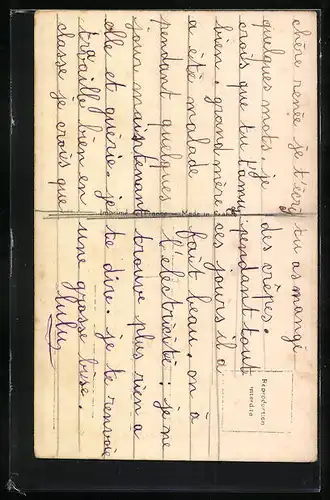 chère renée je t'écris
quelques mots. je
crois que tu t'amuse
bien. grand mère
a été malade
pendant quelques
jours maintenant
elle et guérie. je
travaille bien en
classe je crois que
tu as mangé
des crêpes.
pendant tout
ces jours il a
fait beau. on à
l'électricité. je ne
trouve plus rien a
te dire. je te renvoie
une grosse bise.
lulu
Imprimé en France — Made in
Reproduction
interdite